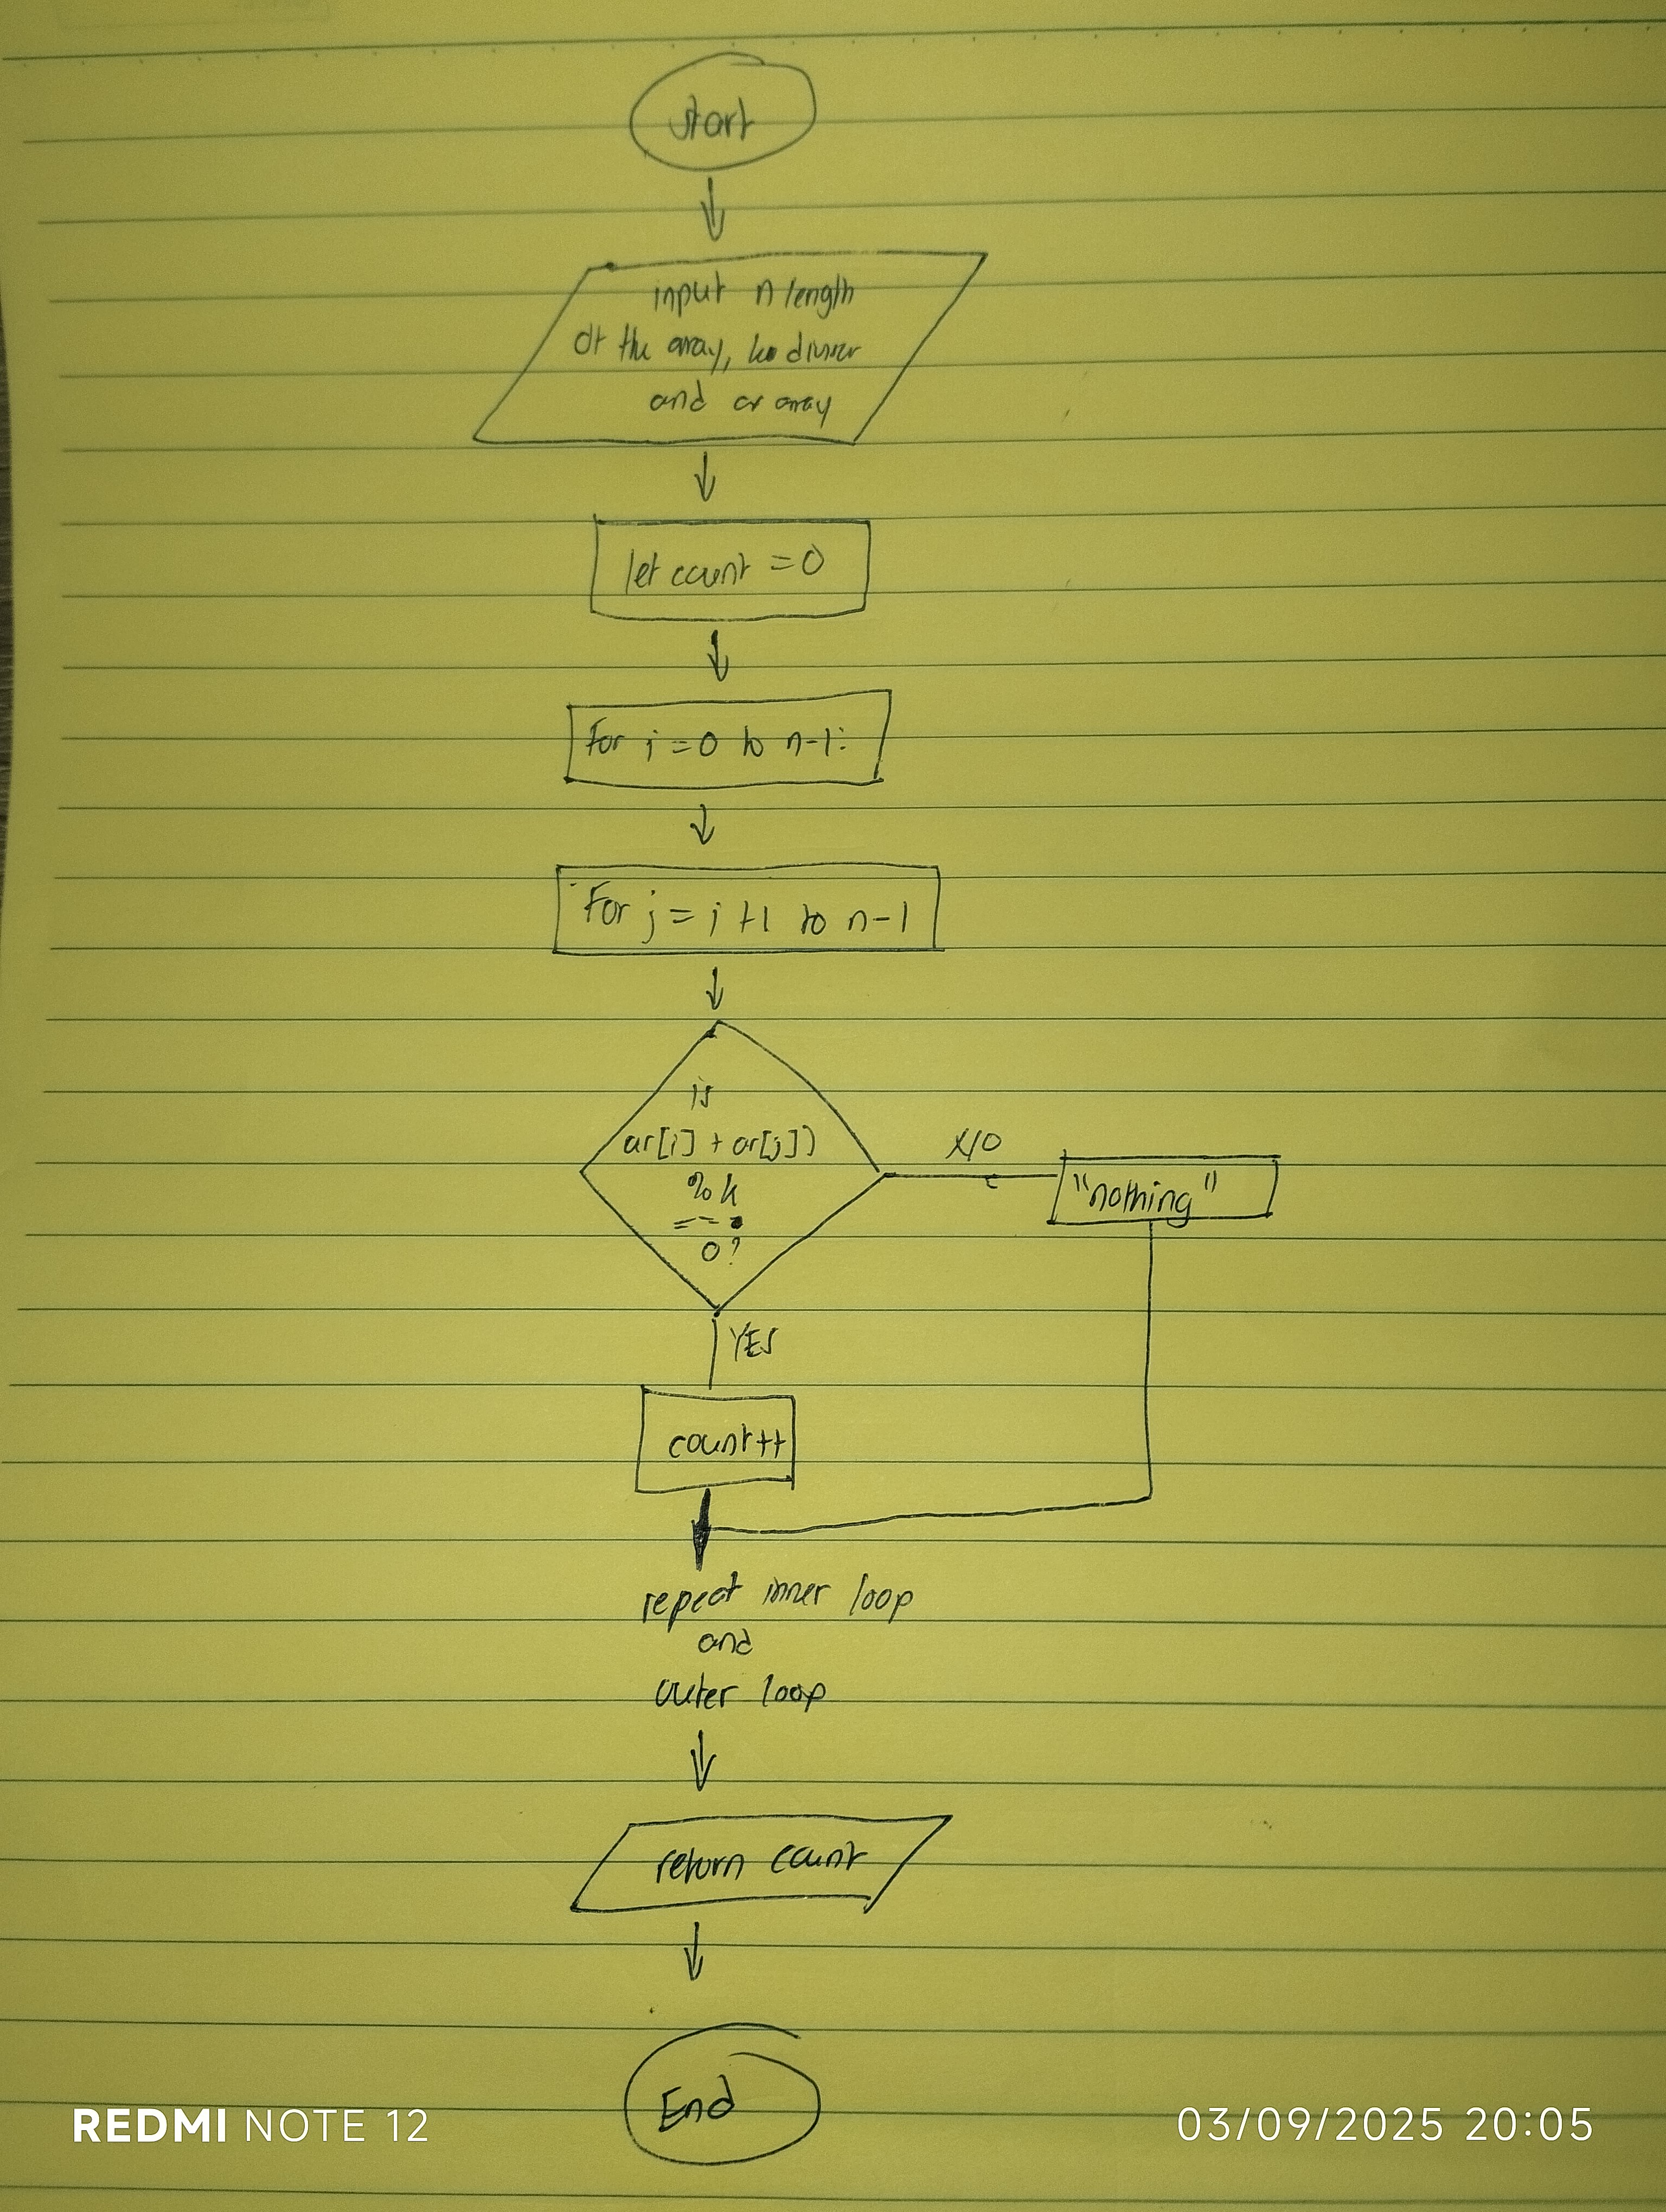 start
input n length
of the array, k divisor
and ar array
let count = 0
For i = 0 to n-1:
For j = i +1 to n-1
is
ar[i] + ar[j])
% k
===
0?
NO
"nothing"
YES
count++
repeat inner loop
and
outer loop
return count
End
REDMI NOTE 12
03/09/2025 20:05